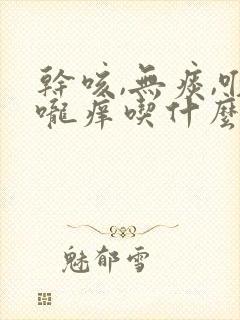 幹咳,無痰,
嚨痒喫什麼
魅郁雪